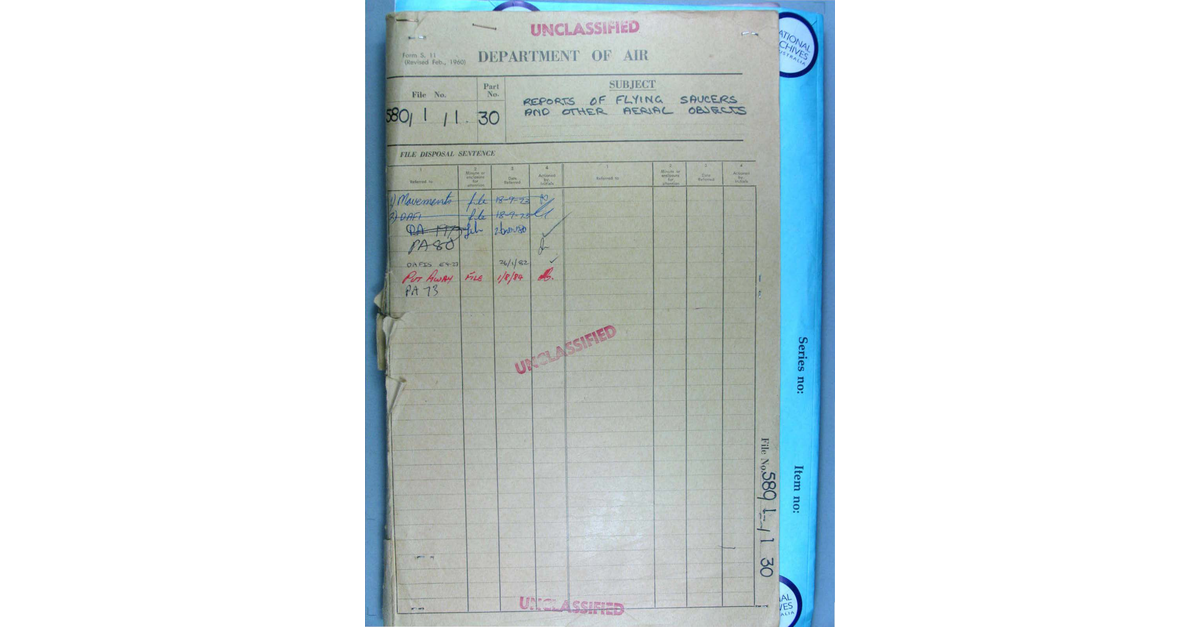 UNCLASSIFIED
Form S. 11
(Revised Feb., 1960)
DEPARTMENT OF AIR
File No.
Part
No.
SUBJECT
580/ 1 / 1.
30
REPORTS OF FLYING SAUCERS
AND OTHER AERIAL OBJECTS
FILE DISPOSAL SENTENCE
1
2
3
4
1
2
3
4
Referred to
Minute or
enclosure
for
attention
Date
Referred
Actioned
by
Initials
Referred to
Minute or
enclosure
for
attention
Date
Referred
Actioned
by
Initials
1) Movements file 18-9-73
2) DAFI file 18-9-73
PA
PA 80
26/1/82
PUT AWAY FILE 1/8/84
PA 73
UNCLASSIFIED
UNCLASSIFIED
File No. 580/ 1 / 1 30
NATIONAL
ARCHIVES
AUSTRALIA
Series no:
Item no: